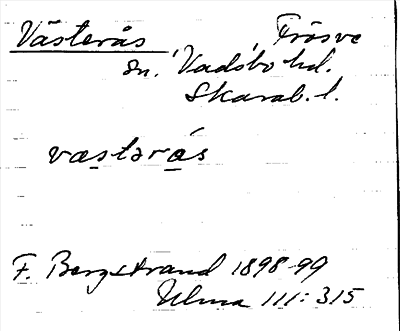 Västerås, , Frösve
sn. Vadsbo hd.
Skarab. l.
væstərås
F. Bergstrand 1898-99
Ulma 111:315